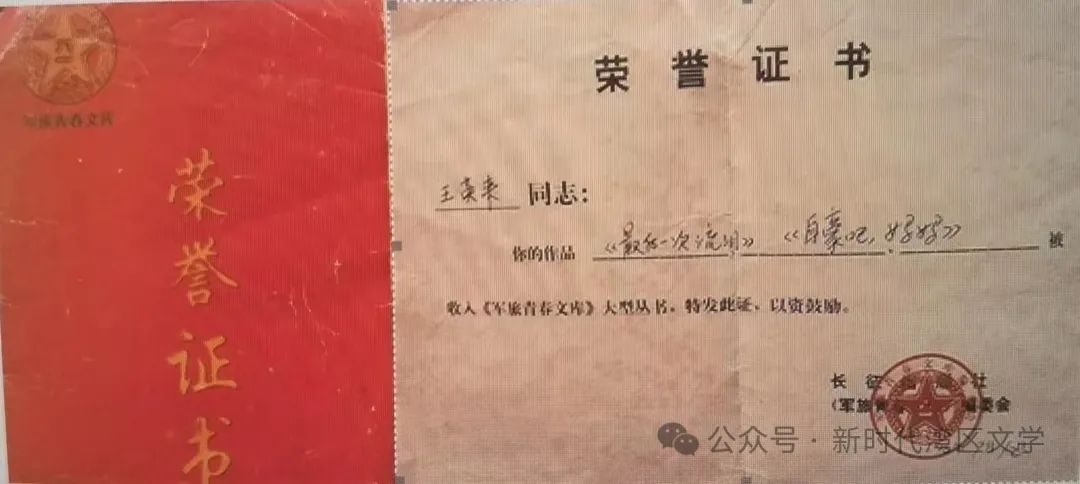 军旅青春文库
荣誉证书
荣誉证书
王荣来 同志：
你的作品 《最后一次流泪》 《自豪吧, 》 被
收入《军旅青春文库》大型丛书，特发此证，以资鼓励。
长征 社
《军旅 委会
公众号 · 新时代湾区文学